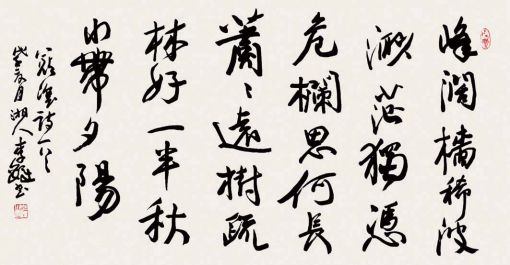 峰闊檣稀波
渺茫獨憑
危欄思何長
蕭〻遠樹疏
林好一半秋
山帶夕陽
寇準詩
湖人李
書